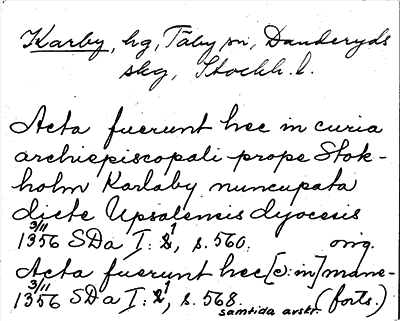 Karby, hg, Täby sn, Danderyds
skg, Stockh. l.
Acta fuerunt hec in curia
archiepiscopali prope Stok-
holm Karlaby nuncupata
dicte Upsalensis dyocesis
3/11
1356 SDa I: 1, s. 560. orig.
Acta fuerunt hec [o: in] mane-
3/11
1356 SDa I: 1, s. 568. (forts.)
samtida avskr.